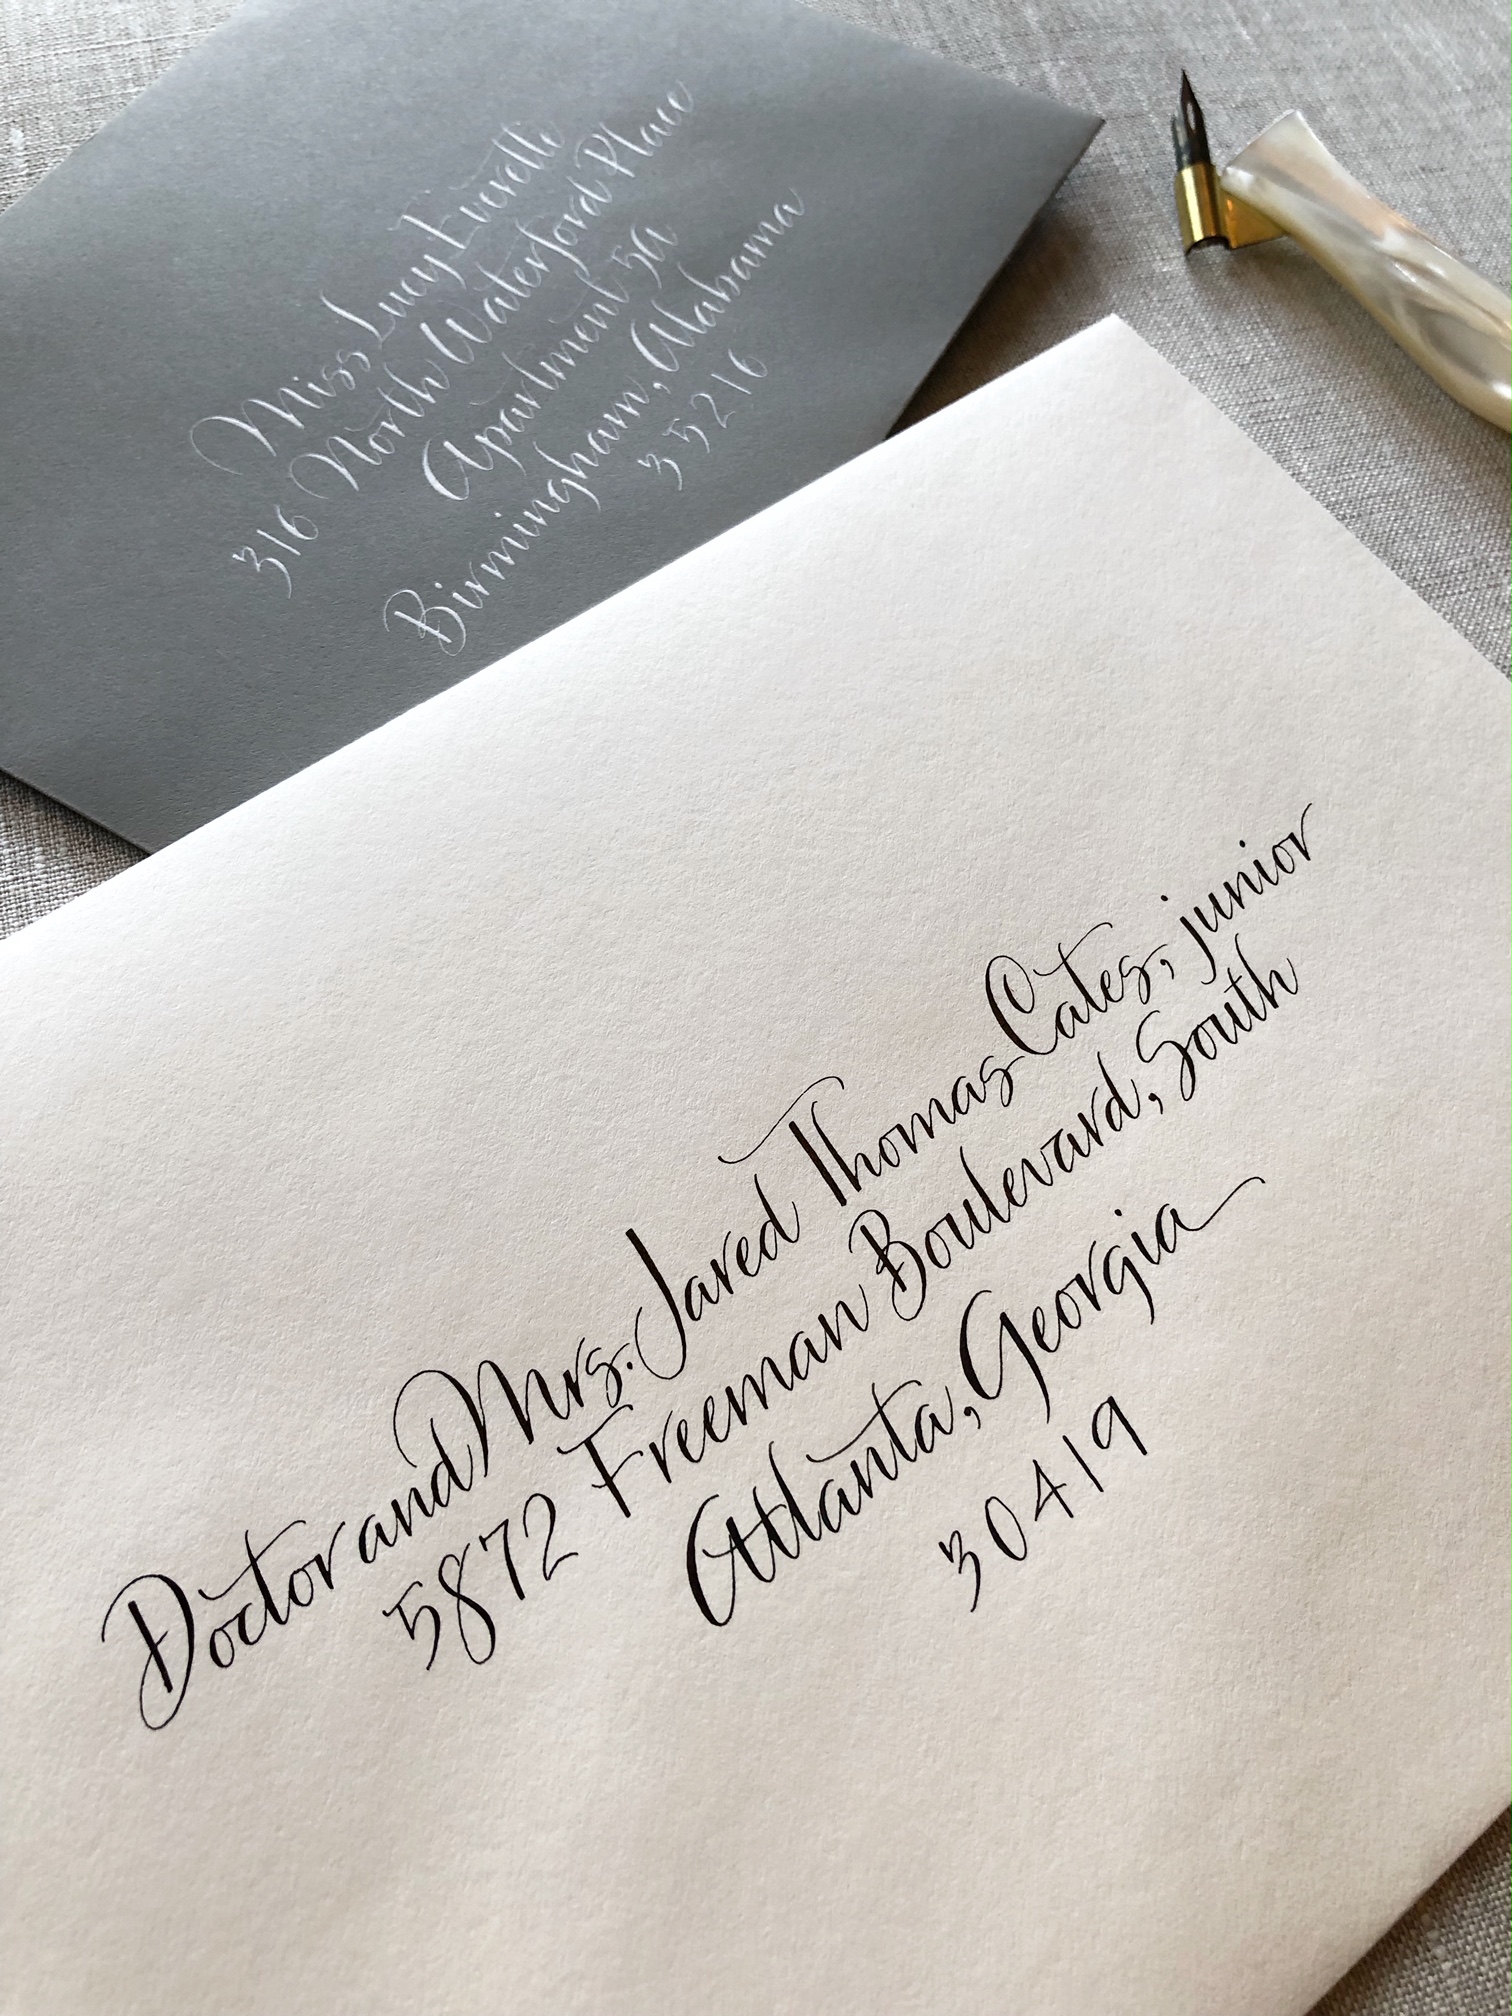 Miss Lucy Everette
316 North Waterford Place
Apartment 5a
Birmingham, Alabama
35216
Doctor and Mrs. Jared Thomas Cates, junior
5872 Freeman Boulevard, South
Atlanta, Georgia
30419